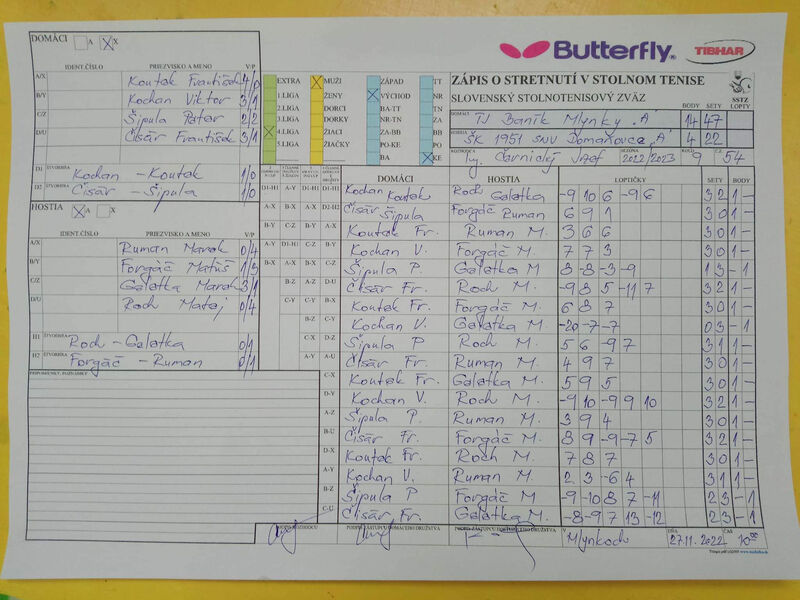 Butterfly
TIBHAR
DOMÁCI A X
IDENT.ČÍSLO PRIEZVISKO A MENO V/P
A/X Koutek František 4/0
B/Y Kochan Viktor 3/1
C/Z Šipula Peter 2/2
D/U Čisár František 3/1
D1 ŠTVORHRA Kochan - Koutek 1/0
D2 ŠTVORHRA Čisár - Šipula 1/0
HOSTIA A X
IDENT.ČÍSLO PRIEZVISKO A MENO V/P
A/X Ruman Marek 0/4
B/Y Forgáč Matúš 1/3
C/Z Galetka Marek 3/1
D/U Roch Matej 0/4
H1 ŠTVORHRA Roch - Galetka 0/1
H2 ŠTVORHRA Forgáč - Ruman 0/1
PRIPOMIENKY, POZNÁMKY
EXTRA MUŽI ZÁPAD TT
1.LIGA ŽENY VÝCHOD NR
2.LIGA DORCI BA-TT TN
3.LIGA DORKY NR-TN ZA
4.LIGA ŽIACI ZA-BB BB
5.LIGA ŽIAČKY PO-KE PO
BA KE
ZÁPIS O STRETNUTÍ V STOLNOM TENISE
SLOVENSKÝ STOLNOTENISOVÝ ZVÄZ
SSTZ
BODY SETY LOPTY
TJ Baník Mlynky "A" 14 47
ŠK 1951 SNV Domaňovce "A" 4 22
Ing. Čarnický Jozef 2022/2023 9 54
DOMÁCI HOSTIA LOPTIČKY SETY BODY
D1-H1 Kochan Koutek Roch Galetka -9 10 6 -9 6 3 2 1 -
D2-H2 Čisár Šipula Forgáč Ruman 6 9 1 3 0 1 -
A-X Koutek Fr. Ruman M. 3 6 6 3 0 1 -
B-Y Kochan V. Forgáč M. 7 7 3 3 0 1 -
C-Z Šipula P. Galetka M. 8 -8 -3 -9 1 3 - 1
D-U Čisár Fr. Roch M. -9 8 5 -11 7 3 2 1 -
B-X Koutek Fr. Forgáč M. 6 8 7 3 0 1 -
Kochan V. Galetka M. -20 -7 -7 0 3 - 1
Šipula P Roch M. 5 6 -9 7 3 1 1 -
Čisár Fr. Ruman M. 4 9 7 3 0 1 -
C-X Koutek Fr. Galetka M. 5 9 5 3 0 1 -
D-Y Kochan V. Roch M. -9 10 -9 9 10 3 2 1 -
A-Z Šipula P. Ruman M. 3 9 4 3 0 1 -
B-U Čisár Fr. Forgáč M. 8 9 -9 -7 5 3 2 1 -
D-X Koutek Fr. Roch M. 7 8 7 3 0 1 -
A-Y Kochan V. Ruman M. 2 3 -6 4 3 1 1 -
B-Z Šipula P Forgáč M -9 -10 8 7 -11 2 3 - 1
C-U Čisár Fr. Galetka M. -8 -9 7 13 -12 2 3 - 1
PODPIS ROZHODCU PODPIS ZÁSTUPCU DOMÁCEHO DRUŽSTVA PODPIS ZÁSTUPCU HOSŤUJÚCEHO DRUŽSTVA V Mlynkoch DŇA 27.11.2022 ČAS 10:00